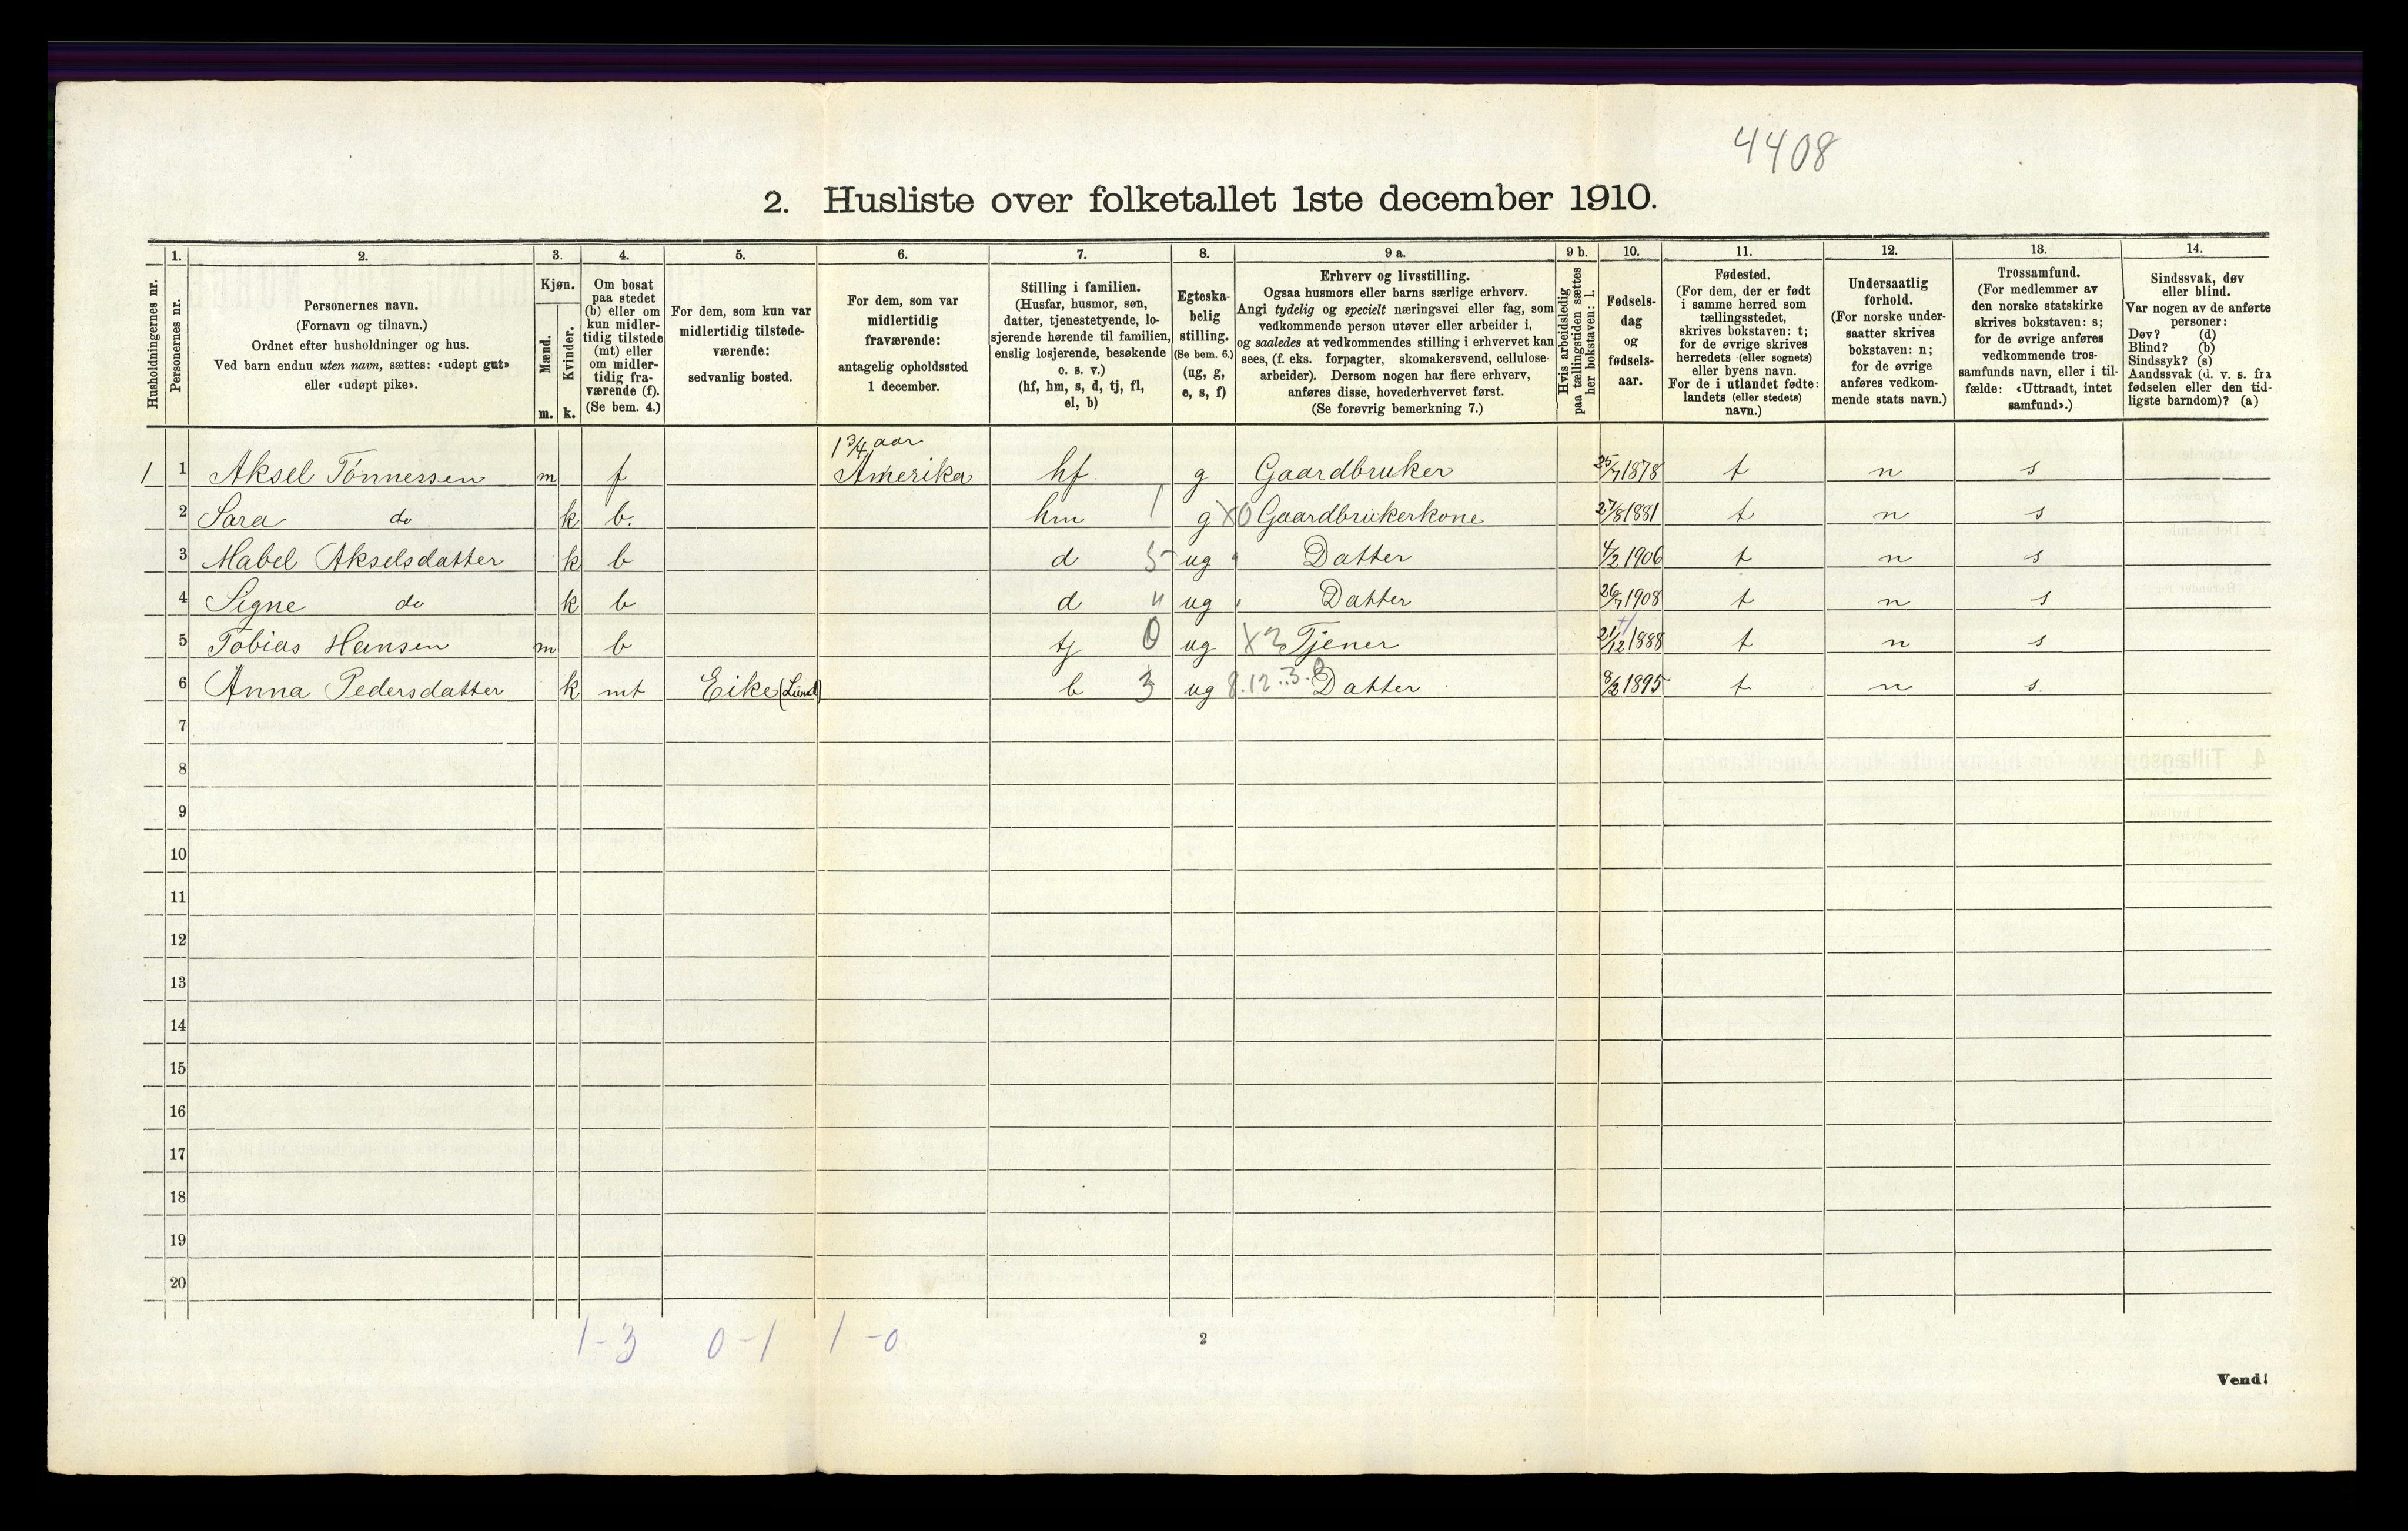 4408
2. Husliste over folketallet 1ste december 1910.
Husholdningernes nr.
1. Personernes nr.
2. Personernes navn.
(Fornavn og tilnavn.)
Ordnet efter husholdninger og hus.
Ved barn endnu uten navn, sættes: «udøpt gut»
eller «udøpt pike».
3. Kjøn.
Mænd. m.
Kvinder. k.
4. Om bosat
paa stedet
(b) eller om
kun midler-
tidig tilstede
(mt) eller
om midler-
tidig fra-
værende (f).
(Se bem. 4.)
5. For dem, som kun var
midlertidig tilstede-
værende:
sedvanlig bosted.
6. For dem, som var
midlertidig
fraværende:
antagelig opholdssted
1 december.
7. Stilling i familien.
(Husfar, husmor, søn,
datter, tjenestetyende, lo-
sjerende hørende til familien,
enslig losjerende, besøkende
o. s. v.)
(hf, hm, s, d, tj, fl,
el, b)
8. Egteska-
belig
stilling.
(Se bem. 6.)
(ug, g,
e, s, f)
9 a. Erhverv og livsstilling.
Ogsaa husmors eller barns særlige erhverv.
Angi tydelig og specielt næringsvei eller fag, som
vedkommende person utøver eller arbeider i,
og saaledes at vedkommendes stilling i erhvervet kan
sees, (f. eks. forpagter, skomakersvend, cellulose-
arbeider). Dersom nogen har flere erhverv,
anføres disse, hovederhvervet først.
(Se forøvrig bemerkning 7.)
9 b. Hvis arbeidsledig
paa tællingstiden sættes
her bokstaven: l.
10. Fødsels-
dag
og
fødsels-
aar.
11. Fødested.
(For dem, der er født
i samme herred som
tællingsstedet,
skrives bokstaven: t;
for de øvrige skrives
herredets (eller sognets)
eller byens navn.
For de i utlandet fødte:
landets (eller stedets)
navn.)
12. Undersaatlig
forhold.
(For norske under-
saatter skrives
bokstaven: n;
for de øvrige
anføres vedkom-
mende stats navn.)
13. Trossamfund.
(For medlemmer av
den norske statskirke
skrives bokstaven: s;
for de øvrige anføres
vedkommende tros-
samfunds navn, eller i til-
fælde: «Uttraadt, intet
samfund».)
14. Sindssvak, døv
eller blind.
Var nogen av de anførte
personer:
Døv? (d)
Blind? (b)
Sindssyk? (s)
Aandssvak (d. v. s. fra
fødselen eller den tid-
ligste barndom)? (a)
1 3/4 aar
1 1 Aksel Tönnessen m f Amerika hf. g Gaardbruker 25/7 1878 t n s
2 Sara do k b. hm 1 g X0 Gaardbrukerkone 27/8 1881 t n s
3 Mabel Akselsdatter k b d 5 ug Datter 4/2 1906 t n s
4 Signe do k b d " ug Datter 26/7 1908 t n s
5 Tobias Hansen m b tj 0 ug X3 Tjener 21/12 1888 t n s
6 Anna Pedersdatter k mt Eike (Lund) b 3 ug 8.12 .. 3. Datter 8/2 1895 t n s.
7
8
9
10
11
12
13
14
15
16
17
18
19
20
1-3 0-1 1-0
2
Vend!